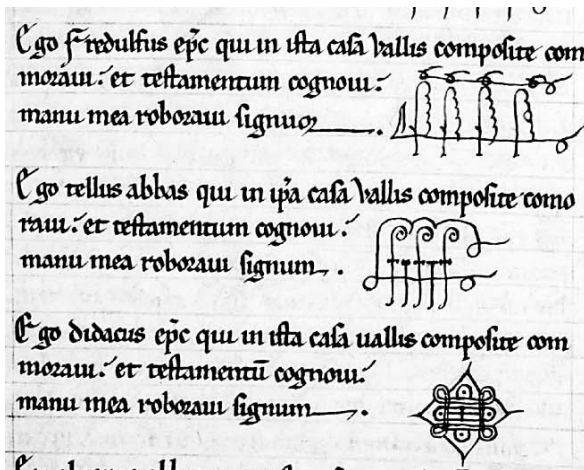 Ego Fredulfus ep̄c qui in ista casa Vallis composite com
moraui: et testamentum cognoui:
manu mea roboraui signum
Ego tellus abbas qui in ip̄a casa Vallis composite como
raui: et testamentum cognoui:
manu mea roboraui signum .
Ego didacus ep̄c qui in ista casa uallis composite com
moraui: et testamentū cognoui:
manu mea roboraui signum .